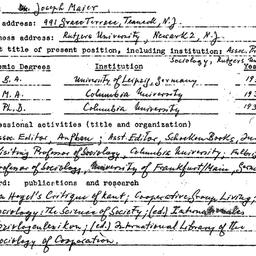 Dr. Joseph Maier
address: 991 Grace Terrace, Teaneck, N.J.
ness address: Rutgers University, Newark 2, N.J.
t title of present position, including institution: Assoc. Pro
Sociology, Rutgers Un
emic Degrees Institution Ye
B.A. University of Leipzig, Germany 193
M.A. Columbia University 193
Ph.D. Columbia University 193
essional activities (title and organization)
Editor, Aufbau; Asst. Editor, Schocken Books, Inc
isiting Professor of Sociology, Columbia University, Fulbrig
rofessor of Sociology, University of Frankfurt/Main, Germ
ard: publications and research
n Hegel's Critique of Kant; Cooperative Group Living;
ociology: The Science of Society; (ed.) Internationales
oziologenlexikon; (ed.) International Library of the
ociology of Cooperation.